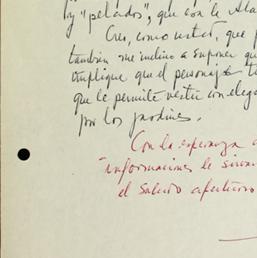 y "pelados", que con le Ala
Creo, como usted, que p
también me inclino a suponer que
implique que el personaje t
que le permite vestir con eleg
por los jardines.
Con la esperanza d
informaciones le sirvan
el saludo afectuoso